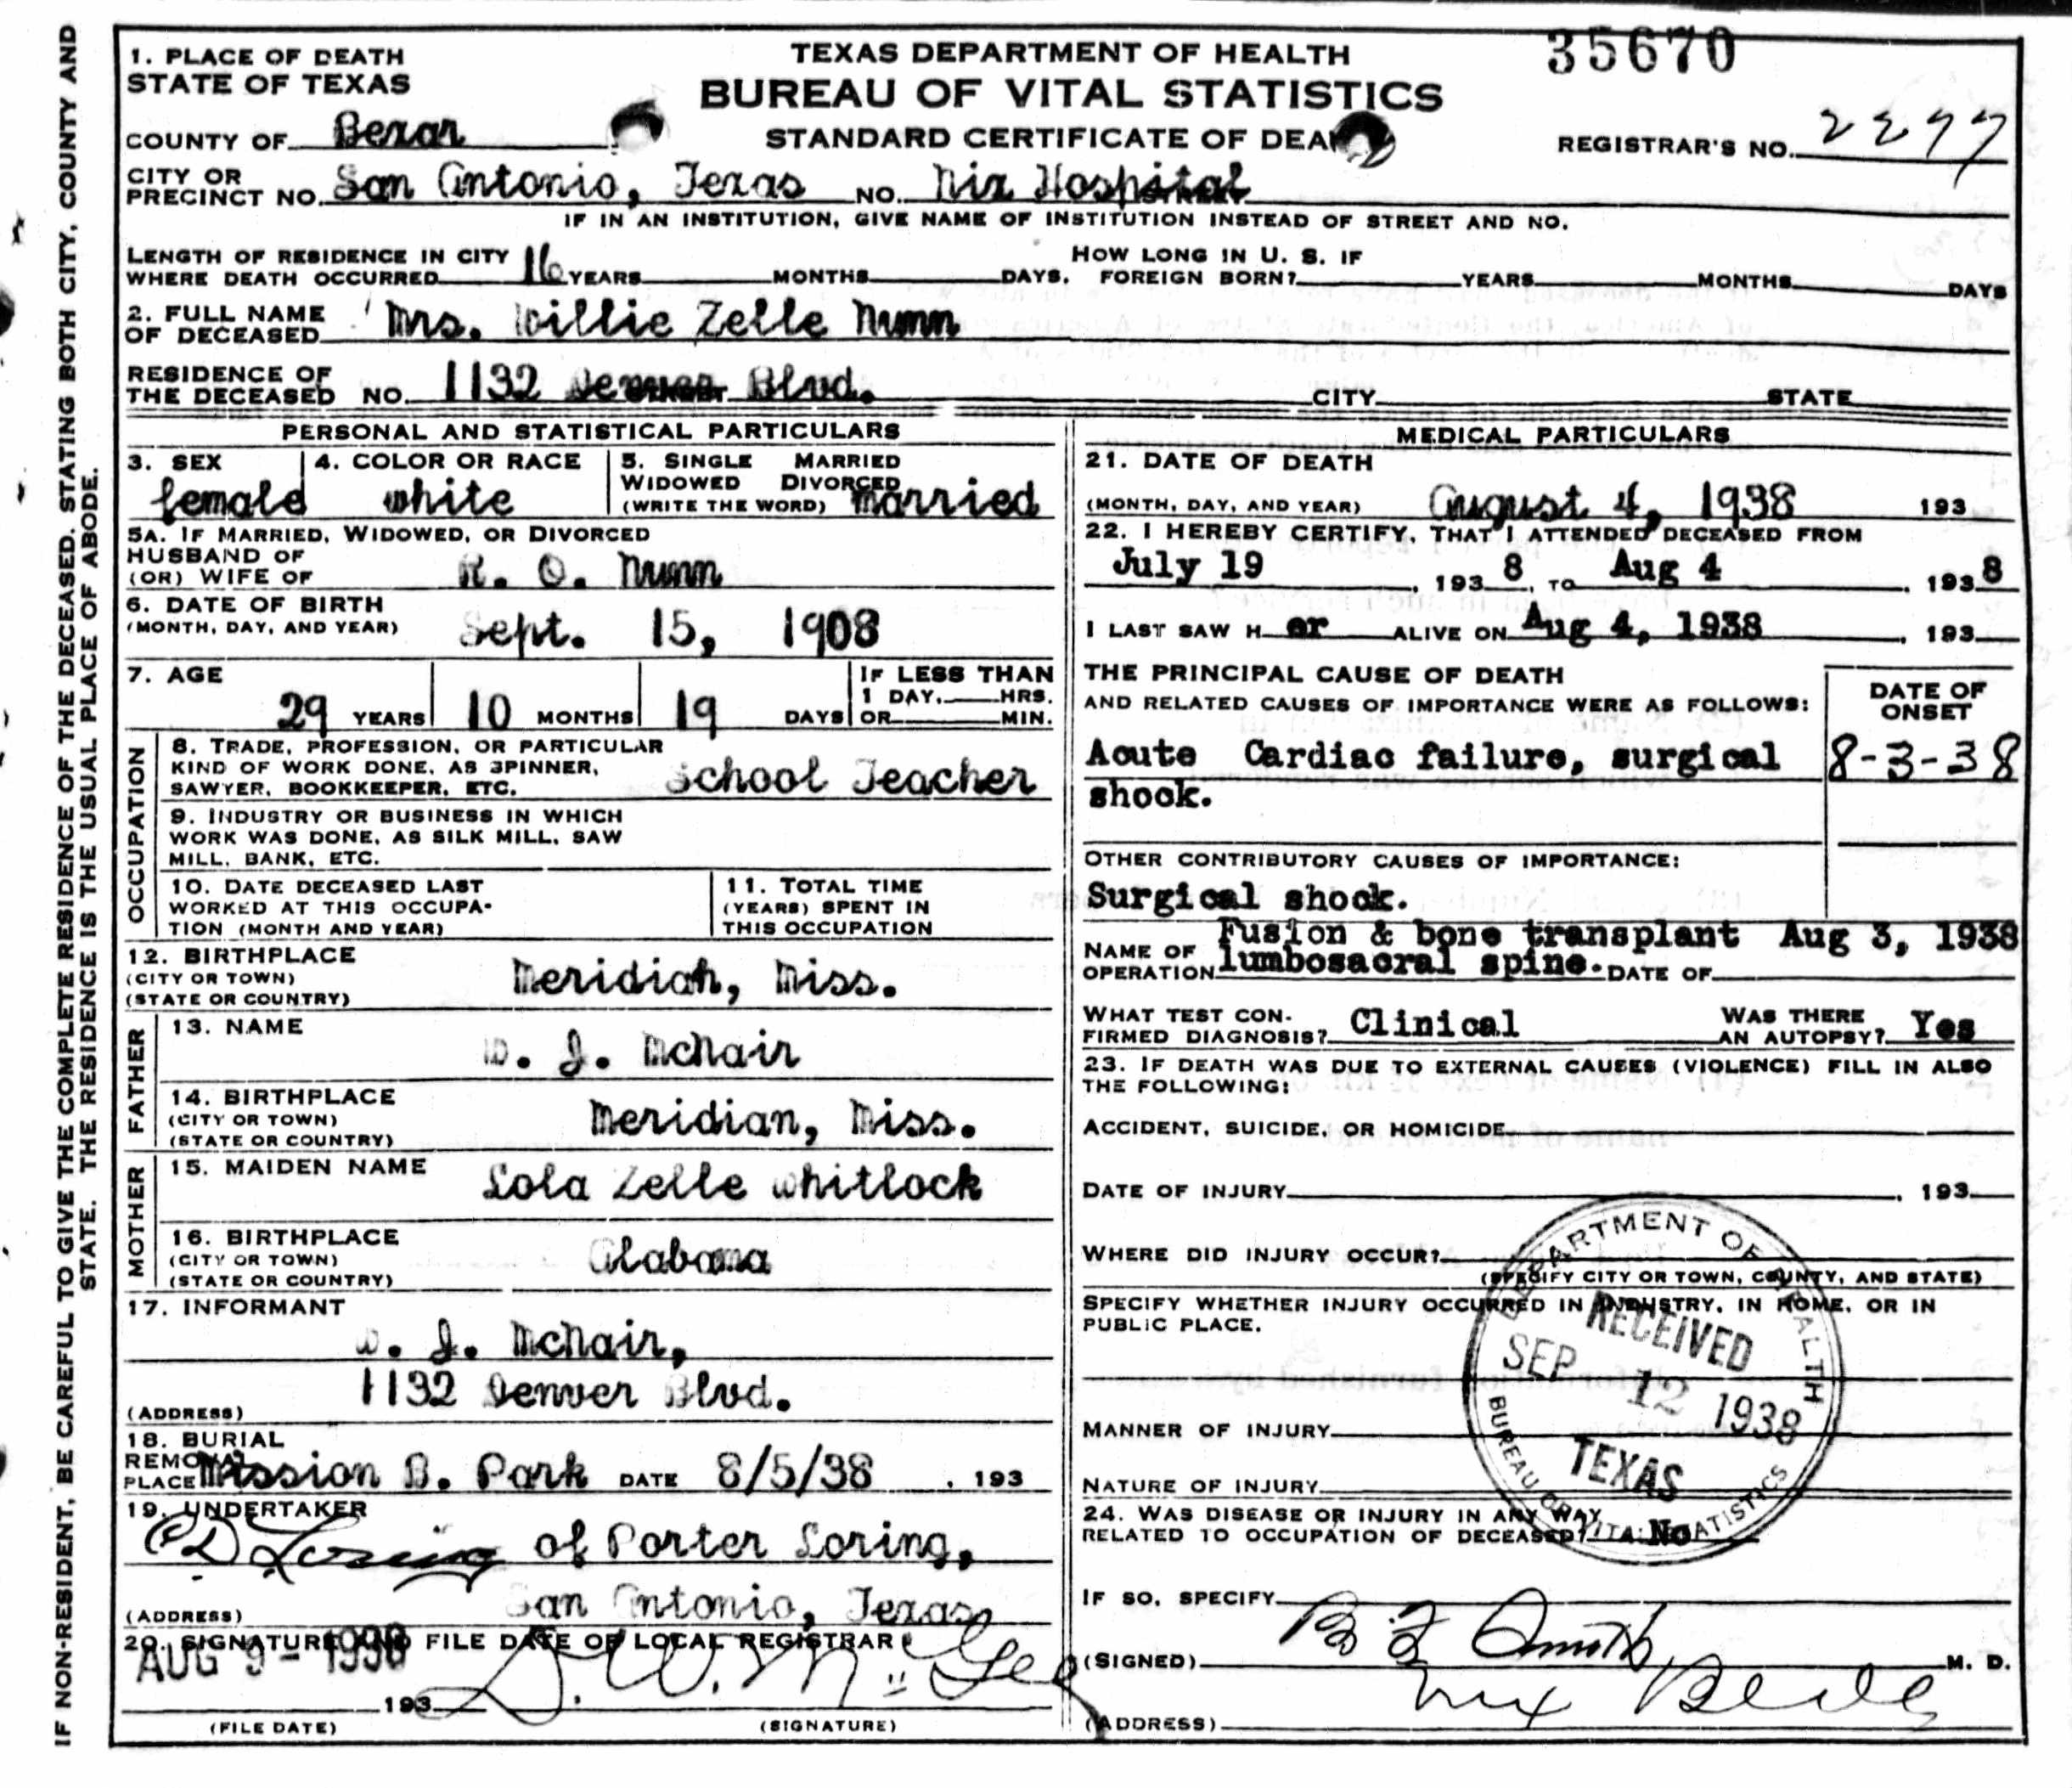 IF NON-RESIDENT, BE CAREFUL TO GIVE THE COMPLETE RESIDENCE OF THE DECEASED, STATING BOTH CITY, COUNTY AND
STATE. THE RESIDENCE IS THE USUAL PLACE OF ABODE.
35670
1. PLACE OF DEATH
STATE OF TEXAS
TEXAS DEPARTMENT OF HEALTH
BUREAU OF VITAL STATISTICS
STANDARD CERTIFICATE OF DEA
COUNTY OF Bexar
REGISTRAR'S NO. 2277
CITY OR
PRECINCT NO. San Antonio, Texas NO. Nix Hospital
IF IN AN INSTITUTION, GIVE NAME OF INSTITUTION INSTEAD OF STREET AND NO.
LENGTH OF RESIDENCE IN CITY
WHERE DEATH OCCURRED 16 YEARS MONTHS DAYS.
HOW LONG IN U. S. IF
FOREIGN BORN? YEARS MONTHS DAYS
2. FULL NAME
OF DECEASED Mrs. Willie Zelle Nunn
RESIDENCE OF
THE DECEASED NO. 1132 Denver Blvd. CITY STATE
PERSONAL AND STATISTICAL PARTICULARS
3. SEX
female
4. COLOR OR RACE
white
5. SINGLE MARRIED
WIDOWED DIVORCED
(WRITE THE WORD) married
5A. IF MARRIED, WIDOWED, OR DIVORCED
HUSBAND OF
(OR) WIFE OF R. O. Nunn
6. DATE OF BIRTH
(MONTH, DAY, AND YEAR) Sept. 15, 1908
7. AGE
29 YEARS 10 MONTHS 19 DAYS
IF LESS THAN
1 DAY, HRS.
OR MIN.
OCCUPATION
8. TRADE, PROFESSION, OR PARTICULAR
KIND OF WORK DONE, AS SPINNER,
SAWYER, BOOKKEEPER, ETC. School Teacher
9. INDUSTRY OR BUSINESS IN WHICH
WORK WAS DONE, AS SILK MILL, SAW
MILL, BANK, ETC.
10. DATE DECEASED LAST
WORKED AT THIS OCCUPA-
TION (MONTH AND YEAR)
11. TOTAL TIME
(YEARS) SPENT IN
THIS OCCUPATION
12. BIRTHPLACE
(CITY OR TOWN)
(STATE OR COUNTRY) Meridian, Miss.
FATHER
13. NAME
W. J. McNair
14. BIRTHPLACE
(CITY OR TOWN)
(STATE OR COUNTRY) Meridian, Miss.
MOTHER
15. MAIDEN NAME Lola Zelle Whitlock
16. BIRTHPLACE
(CITY OR TOWN)
(STATE OR COUNTRY) Alabama
17. INFORMANT
W. J. McNair,
1132 Denver Blvd.
(ADDRESS)
18. BURIAL
REMOVAL
PLACE Mission B. Park DATE 8/5/38 , 193
19. UNDERTAKER
Loring of Porter Loring,
San Antonio, Texas
(ADDRESS)
20. SIGNATURE AND FILE DATE OF LOCAL REGISTRAR
AUG 9 - 1938
193 D. W. McGee
(FILE DATE) (SIGNATURE)
MEDICAL PARTICULARS
21. DATE OF DEATH
(MONTH, DAY, AND YEAR) August 4, 1938 193
22. I HEREBY CERTIFY, THAT I ATTENDED DECEASED FROM
July 19 , 193 8, TO Aug 4 , 193 8
I LAST SAW H er ALIVE ON Aug 4, 1938 , 193
THE PRINCIPAL CAUSE OF DEATH
AND RELATED CAUSES OF IMPORTANCE WERE AS FOLLOWS:
DATE OF
ONSET
Acute Cardiac failure, surgical 8-3-38
shock.
OTHER CONTRIBUTORY CAUSES OF IMPORTANCE:
Surgical shock.
Fusion & bone transplant Aug 3, 1938
NAME OF
OPERATION lumbosacral spine. DATE OF
WHAT TEST CON-
FIRMED DIAGNOSIS? Clinical
WAS THERE
AN AUTOPSY? Yes
23. IF DEATH WAS DUE TO EXTERNAL CAUSES (VIOLENCE) FILL IN ALSO
THE FOLLOWING:
ACCIDENT, SUICIDE, OR HOMICIDE
DATE OF INJURY , 193
WHERE DID INJURY OCCUR?
(SPECIFY CITY OR TOWN, COUNTY, AND STATE)
SPECIFY WHETHER INJURY OCCURRED IN INDUSTRY, IN HOME, OR IN
PUBLIC PLACE.
MANNER OF INJURY
NATURE OF INJURY
DEPARTMENT OF HEALTH
RECEIVED
SEP 12 1938
TEXAS
BUREAU OF VITAL STATISTICS
24. WAS DISEASE OR INJURY IN ANY WAY
RELATED TO OCCUPATION OF DECEASED? No
IF SO, SPECIFY
(SIGNED) Smith M. D.
(ADDRESS) Nix Bldg